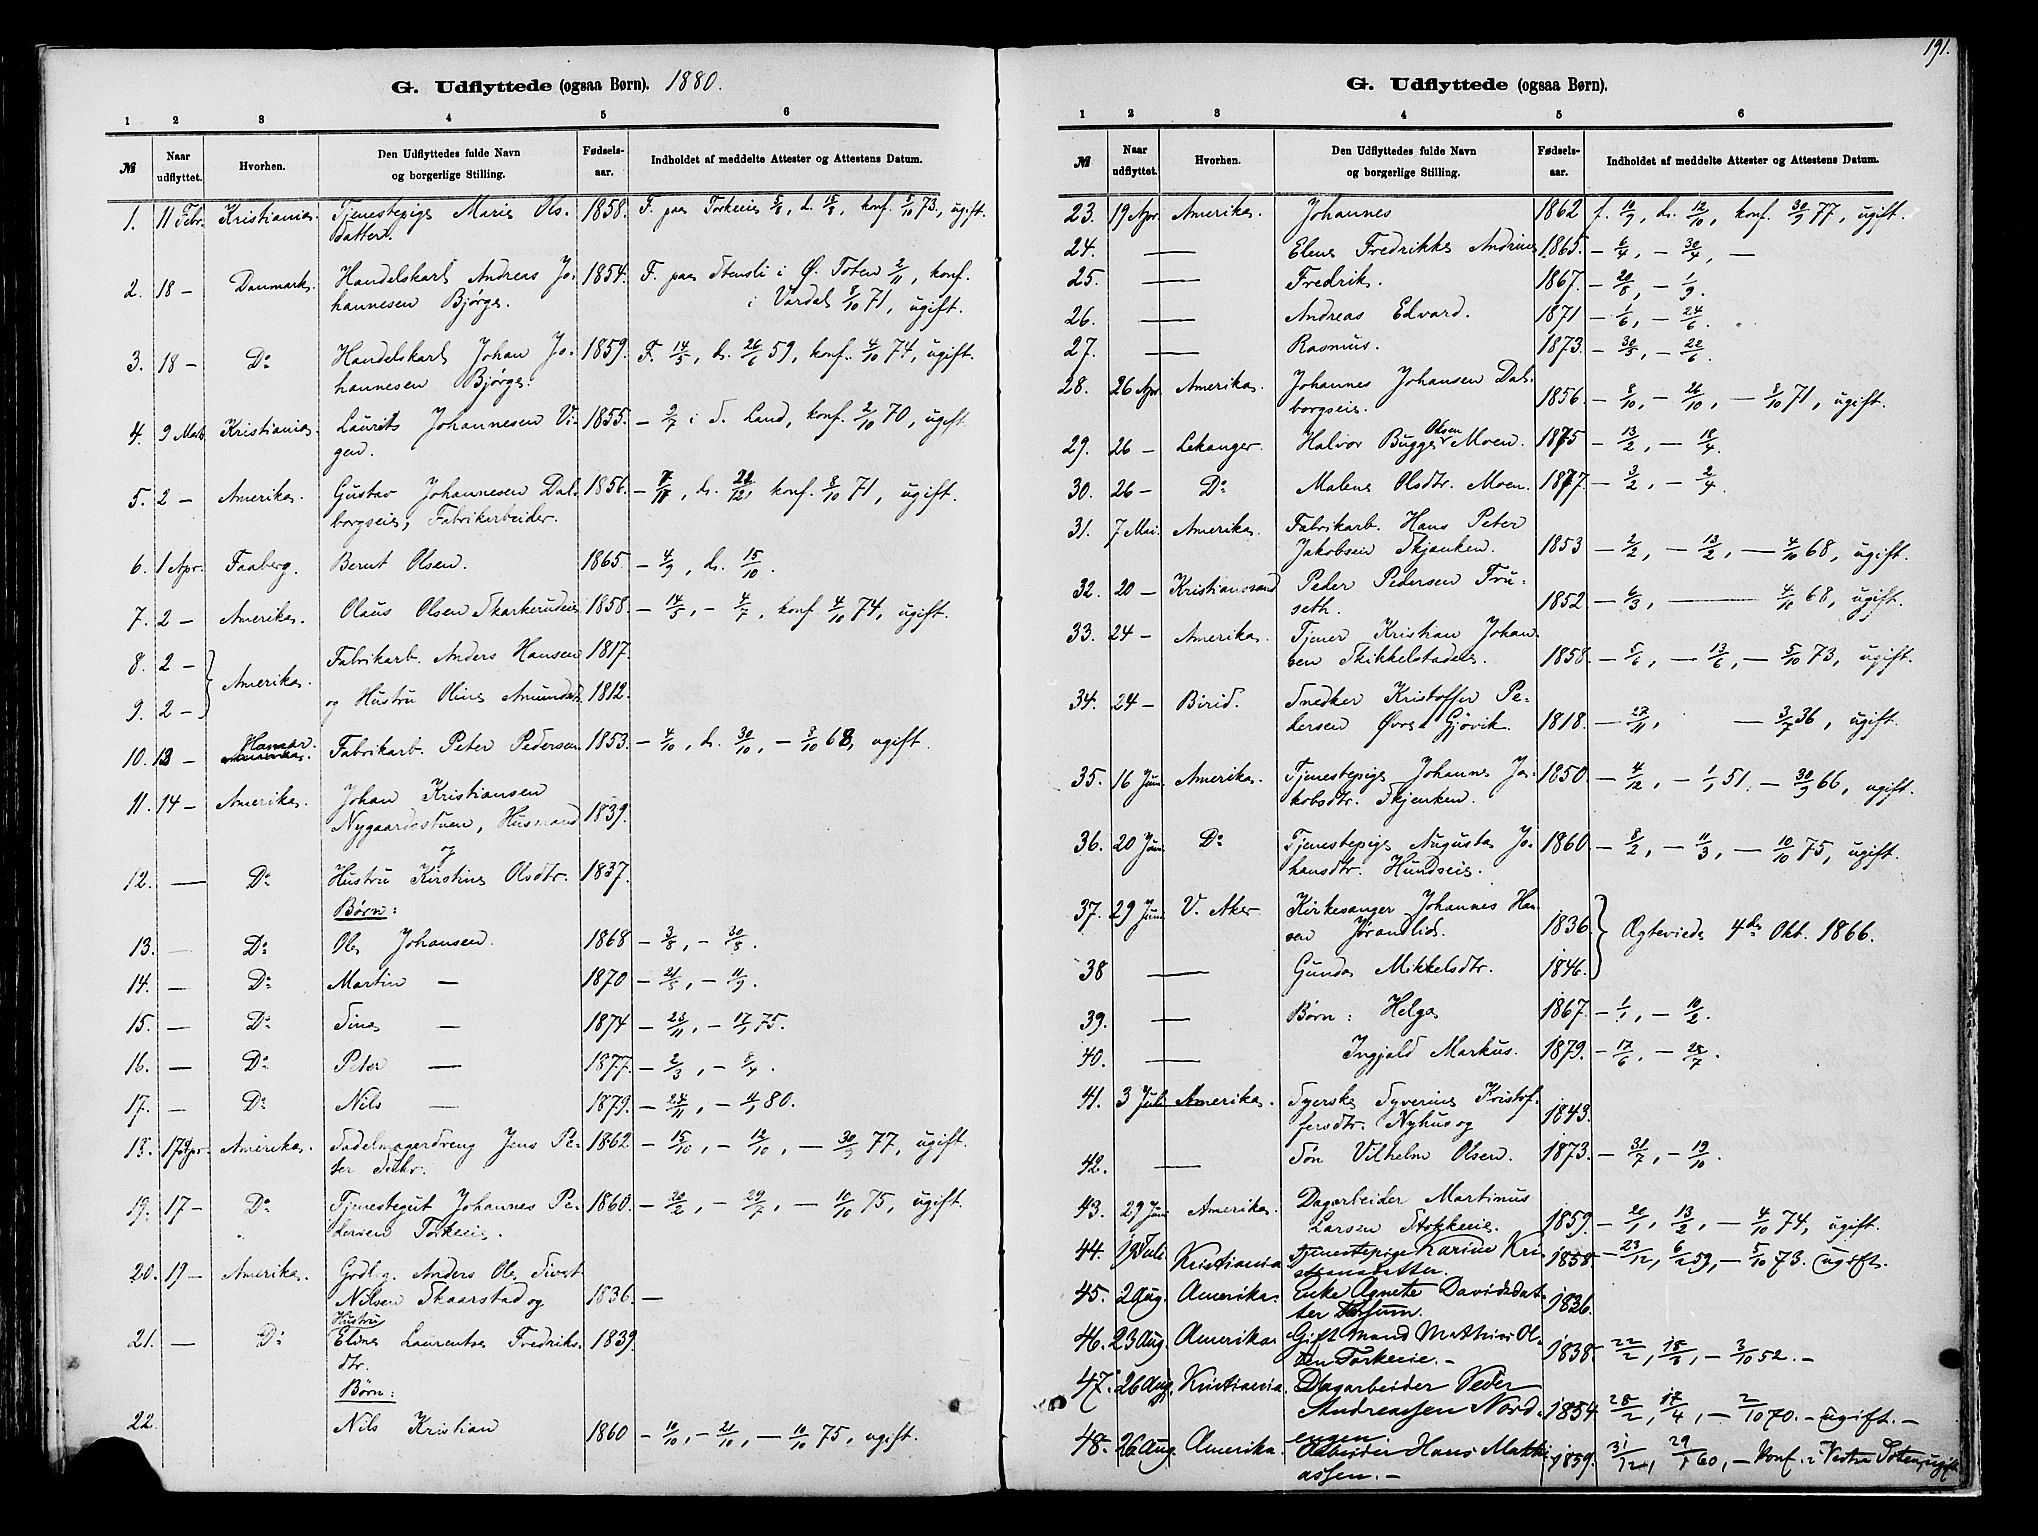 191.
G. Udflyttede (ogsaa Børn). 1880.
1 2 3 4 5 6
№ Naar udflyttet. Hvorhen. Den Udflyttedes fulde Navn og borgerlige Stilling. Fødsels-aar. Indholdet af meddelte Attester og Attestens Datum.
1. 11 Febr. Kristiania. Tjenestepige Marie Ols- 1858. F. paa Torkeeie 5/8, d. 15/8, konf. 5/10 73, ugift.
datter.
2. 18 — Danmark. Handelskarl Andreas Jo- 1854. F. paa Stensli i Ø. Toten 2/11, konf.
hannesen Bjørge. i Vardal 8/10 71, ugift.
3. 18 — Do Handelskarl Johan Jo- 1859. F. 14/5, d. 26/6 59, konf. 4/10 74, ugift.
hannesen Bjørge.
4. 9 Mats Kristiania. Laurits Johannesen Vi- 1855. — 2/7 i S. Land, konf. 2/10 70, ugift
gen.
5. 2 — Amerika. Gustav Johannesen Dal- 1856. — 7/11, d. 20/12, konf. 8/10 71, ugift.
borgseie, Fabrikarbeider.
6. 1 Apr. Faaberg. Bernt Olsen. 1865 — 4/9, d. 15/10.
7. 2 — Amerika. Olaus Olsen Skarkerudeie 1858. — 14/5, — 4/7, konf. 4/10 74, ugift.
8. 2 — Fabrikarb. Anders Hansen 1817.
Amerika.
9. 2 — og Hustru Oline Amundsdtr. 1812.
10. 13 — Hamar. Fabrikarb. Peter Pedersen 1853. — 4/10, d. 30/10, — 8/10 68, ugift.
11. 14 — Amerika. Johan Kristiansen
Nygaardsstuen, Husmand 1839.
og
12. — Do Hustru Kirstine Olsdtr. 1837.
Børn:
13. — Do Ole Johansen. 1868 — 3/5, — 30/5.
14. — Do Martin — 1870 — 21/5, — 11/9.
15. — Do Sine — 1874 — 23/11, — 17/1 75.
16. — Do Peter — 1877. — 2/3, — 8/4.
17. — Do Nils — 1879. — 24/11, — 4/1 80.
18. 17 Apr. Amerika. Sadelmagerdreng Jens Pe- 1862 — 15/10, — 12/10, — 30/9 77, ugift.
ter Suhr.
19. 17 — Do Tjenestegut Johannes Pe- 1860. — 20/2, — 29/7, — 10/10 75, ugift.
dersen Torkeeie.
20. 19 — Amerika. Grdb.g. Anders Ole Sivert
Nilsen Skaarstad og 1836. —
Hustru
21. — Do Eline Laurentse Fredriks- 1839.
dtr.
Børn:
22. Nils Kristian 1860 — 10/10, — 21/10, — 10/10 75, ugift.
G. Udflyttede (ogsaa Børn).
1 2 3 4 5 6
№ Naar udflyttet. Hvorhen. Den Udflyttedes fulde Navn og borgerlige Stilling. Fødsels-aar. Indholdet af meddelte Attester og Attestens Datum.
23. 19 Apr. Amerika. Johannes 1862 f. 10/9, d. 12/10, konf. 30/9 77, ugift.
24. — Elene Fredrikke Andrine 1865. — 6/4, — 30/4, —
25. — Fredrik. 1867. — 20/8, — 1/9.
26. — Andreas Edvard. 1871 — 1/6, — 24/6.
27. — Rasmus. 1873. — 30/5, — 22/6.
28. 26 Apr. Amerika. Johannes Johansen Dal-
borgseie. 1856. — 8/10, — 26/10, — 8/10 71, ugift.
29. 26 — Lekanger. Halvor Bugge Olsen Moen. 1875 — 13/2, — 18/4.
30. 26 — Do Malene Olsdtr. Moen. 1877. — 3/2, — 2/4.
31. 7 Mai. Amerika. Fabrikarb. Hans Peter
Jakobsen Skjenken. 1853 — 2/2, — 13/2, — 4/10 68, ugift.
32. 20 — Kristianssand Peder Pedersen Fru-
seth. 1852 — 6/3, — 4/10 68, ugift.
33. 24 — Amerika. Tjener Kristian Johan-
sen Skikkelstadeie. 1858. — 5/6, — 13/6, — 5/10 73, ugift.
34. 24 — Birid. Snedker Kristoffer Pe-
dersen Øvre Gjøvik. 1818. — 27/11, — 3/7 36, ugift.
35. 16 Juni. Amerika. Tjenestepige Johanne Ja- 1850. — 4/12, — 1/1 51. — 30/9 66, ugift.
kobsdtr. Skjenken.
36. 20 Juni. Do Tjenestepige Augusta Jo- 1860 — 8/2, — 11/3, — 10/10 75, ugift.
hansdtr. Hundseie.
37. 29 Juni V. Aker Kirkesanger Johannes Han-
sen Jørandlid. 1836. Ægteviede 4de Okt. 1866.
38 — Gunda Mikkelsdtr. 1846.
39. — Børn: Helga 1867. — 1/1, — 10/2.
40. — Ingjald Markus. 1879. — 17/6, — 28/7.
41. 3 Juli Amerika. Syerske Syverine Kristof-
fersdtr. Nyhus og 1843.
42. — Søn Vilhelm Olsen. 1873. — 31/7, — 19/10.
43. 29 Juni Amerika. Dagarbeider Martinus
Larsen Stokkeeie. 1859. — 20/1, 13/2, — 4/10 74, ugift.
44. 19 Juli Kristiania Tjenestepige Karine Kri- 1858 — 23/12, 6/2 59, — 5/10 73. Ugift.
stiansdatter.
45. 2 Aug. Amerika. Enke Agnete Davidsdat-
ter 1826.
46. 23 Aug. Amerika Gift Mand Mathias Ol-
sen Torkeeie. — 1838. 22/2, 18/3, — 3/10 52. —
47. 26 Aug. Kristiania. Dagarbeider Peder
Andreassen Nord- 1854 28/2, 17/4, — 2/10 70. — Ugift. —
engen.
48. 26 Aug. Amerika. Arbeider Hans Matthi- 1859. 31/12, 29/1 60, — Konf. i Vestre Toten, ugift.
assen. —